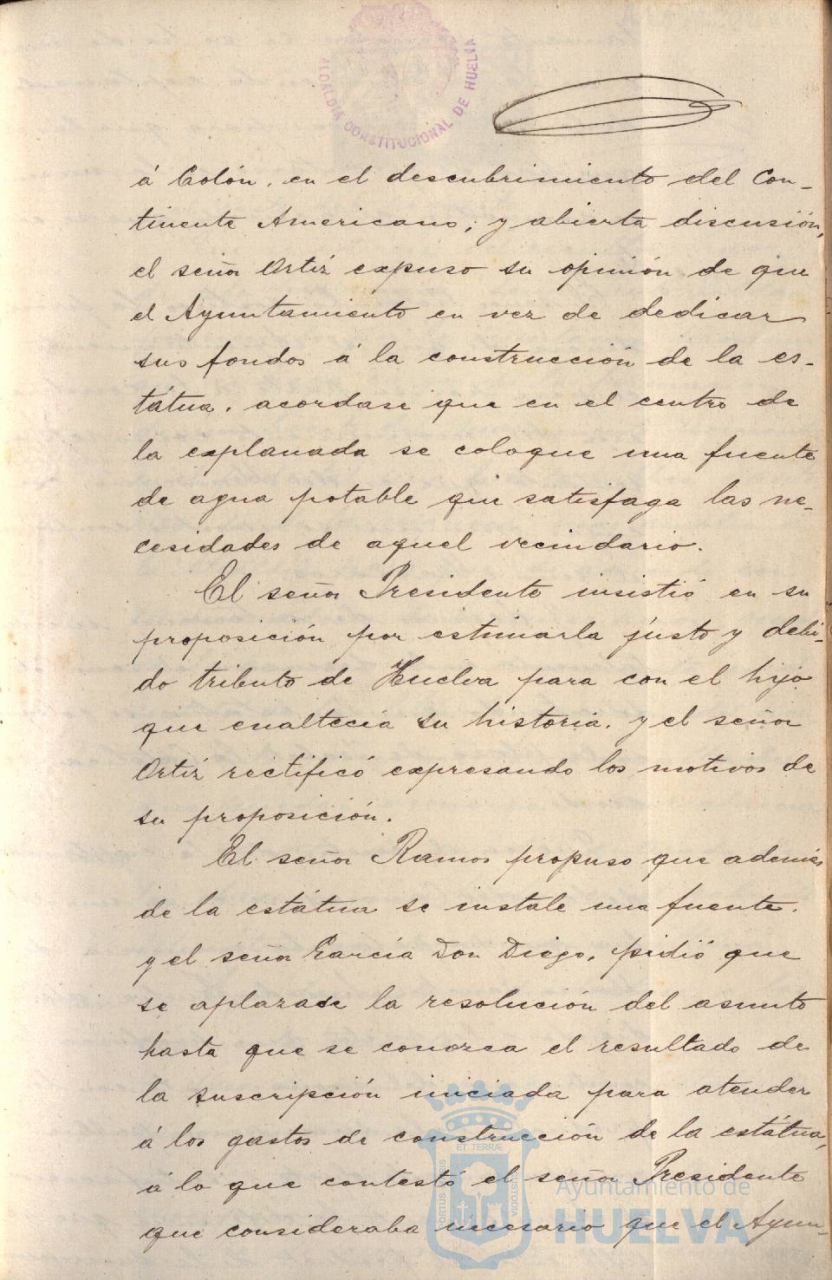 ALCALDÍA CONSTITUCIONAL DE HUELVA
á Colón, en el descubrimiento del Con-
tinente Americano; y abierta discusión,
el señor Ortiz expuso su opinión de que
el Ayuntamiento en vez de dedicar
sus fondos á la construcción de la es-
tátua, acordase que en el centro de
la explanada se coloque una fuente
de agua potable que satisfaga las ne-
cesidades de aquel vecindario.
El señor Presidente insistió en su
proposición por estimarla justo y debi-
do tributo de Huelva para con el hijo
que enaltecía su historia, y el señor
Ortiz rectificó expresando los motivos de
su proposición.
El señor Ramos propuso que además
de la estátua se instale una fuente,
y el señor García Don Diego, pidió que
se aplazase la resolución del asunto
hasta que se conozca el resultado de
la suscripción iniciada para atender
á los gastos de construcción de la estátua,
á lo que contestó el señor Presidente
que consideraba necesario que el Ayun-
PORTUS MARIS ET TERRAE CUSTODIA
Ayuntamiento de
HUELVA